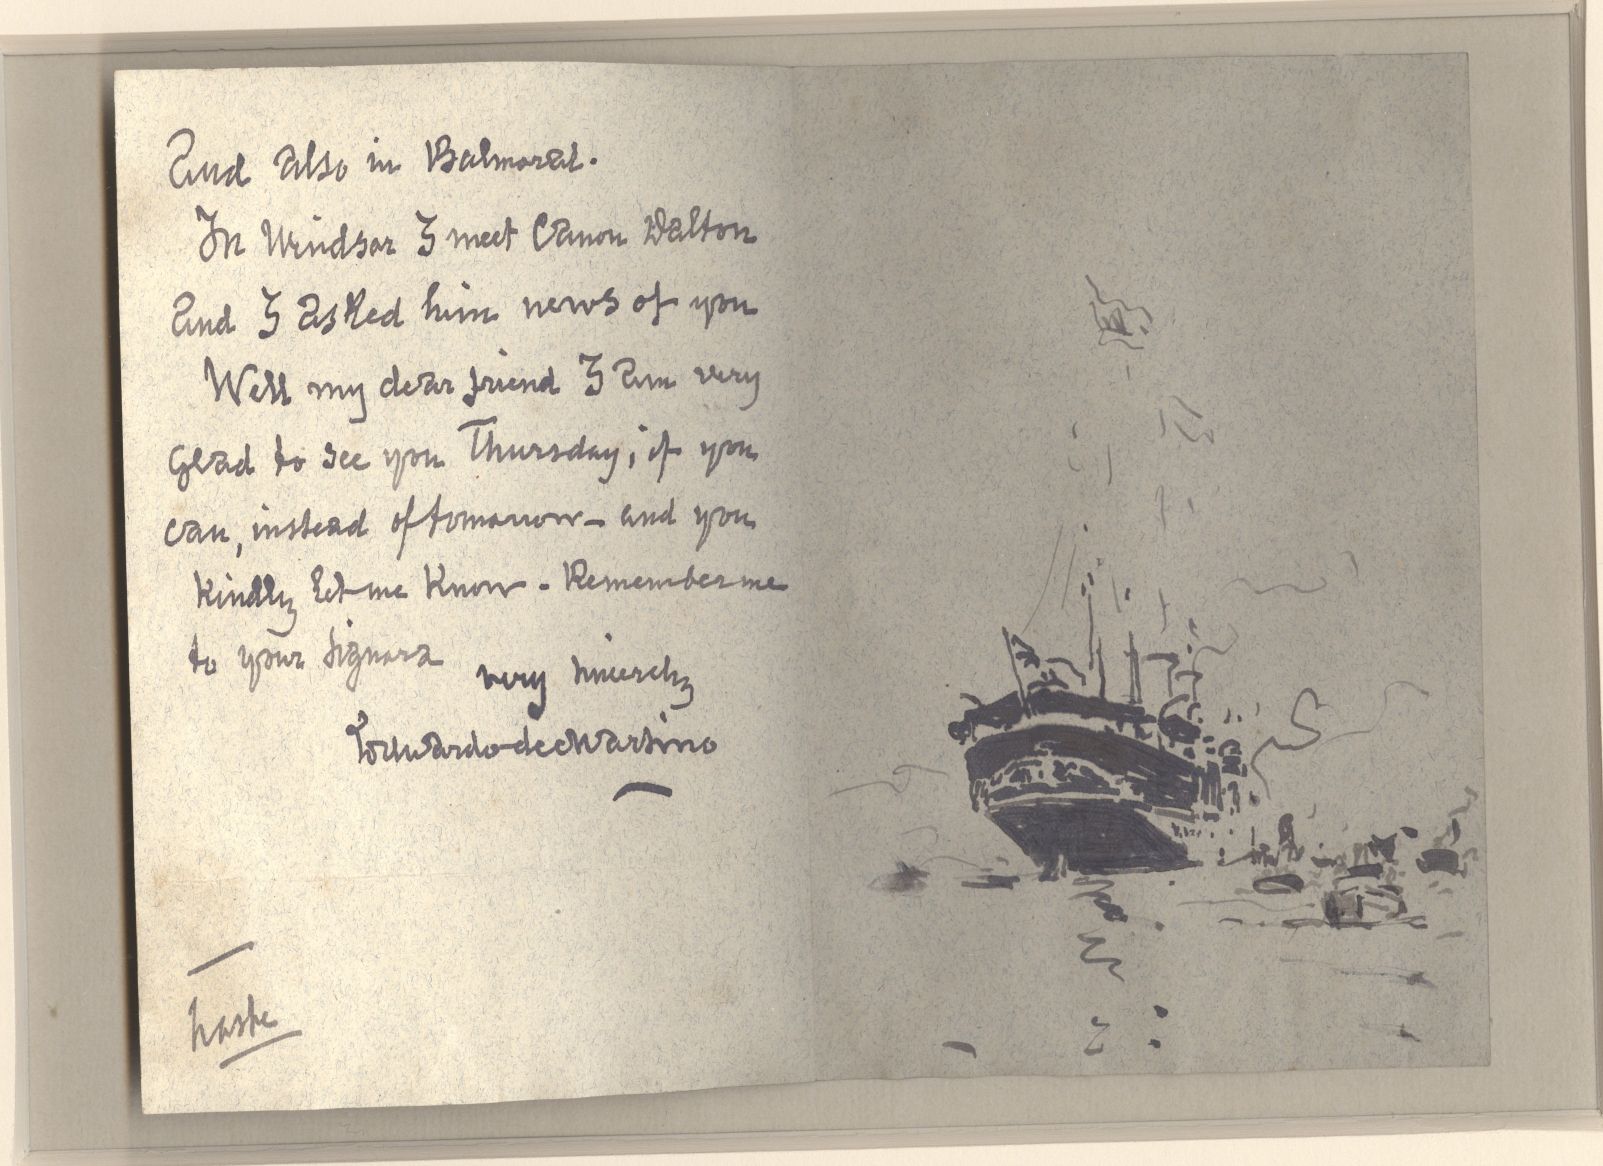 and also in Balmoral.
In Windsor I meet Canon Dalton
and I asked him news of you
Well my dear friend I am very
glad to see you Thursday; if you
can, instead of tomorrow - and you
kindly let me know - Remember me
to your Signora
very sincerely
Eduardo de Martino
haste